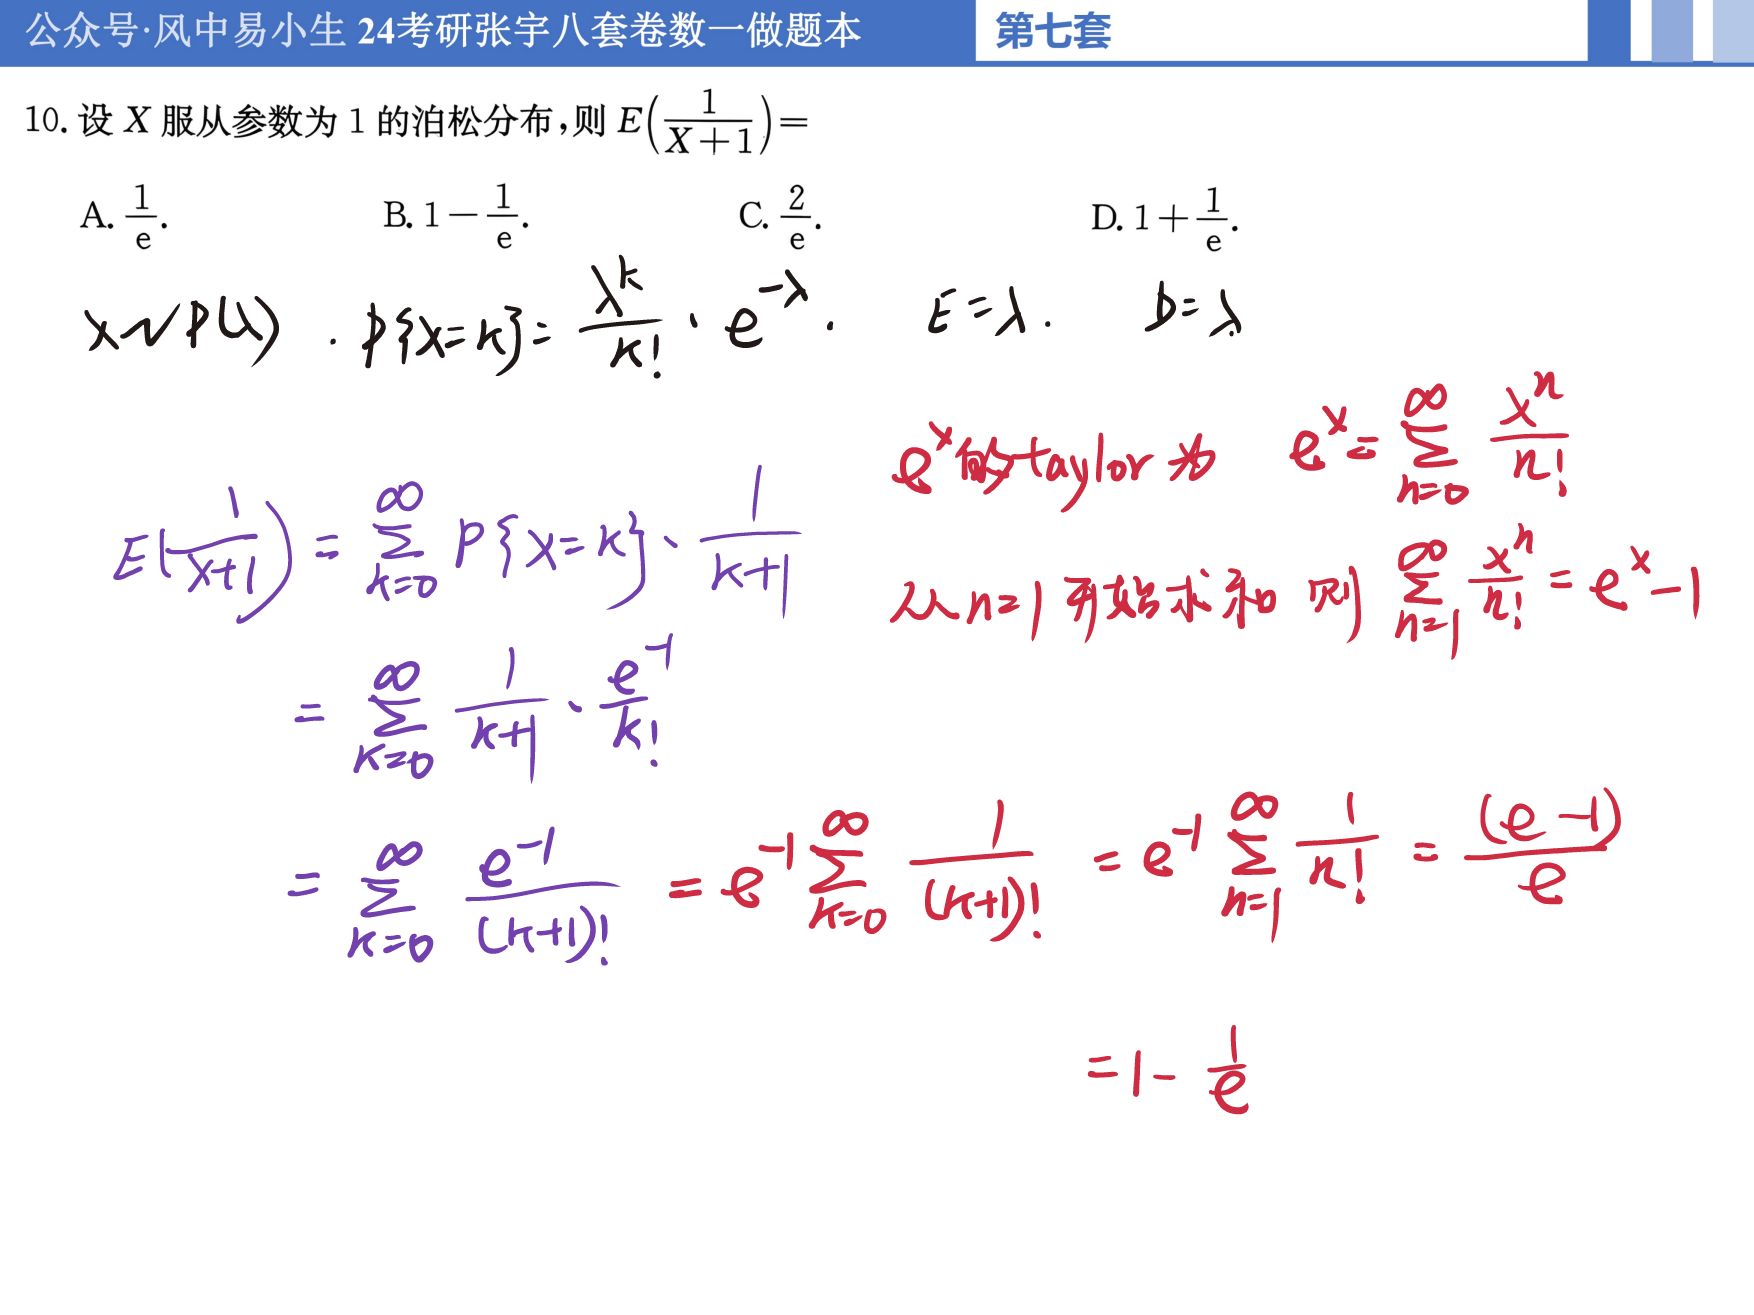 公众号·风中易小生 24考研张宇八套卷数一做题本 第七套
10. 设 X 服从参数为 1 的泊松分布,则 E(1/(X+1))=
A. 1/e. B. 1-1/e. C. 2/e. D. 1+1/e.
X~P(λ) . P{X=k}= λ^k/k! · e^-λ. E=λ. D=λ
e^x的taylor为 e^x= ∑_{n=0}^∞ x^n/n!
E(1/(X+1)) = ∑_{k=0}^∞ P{X=k}· 1/(k+1)
从n=1开始求和 则 ∑_{n=1}^∞ x^n/n! = e^x-1
= ∑_{k=0}^∞ 1/(k+1) · e^-1/k!
= ∑_{k=0}^∞ e^-1/(k+1)! = e^-1 ∑_{k=0}^∞ 1/(k+1)! = e^-1 ∑_{n=1}^∞ 1/n! = (e-1)/e
=1- 1/e